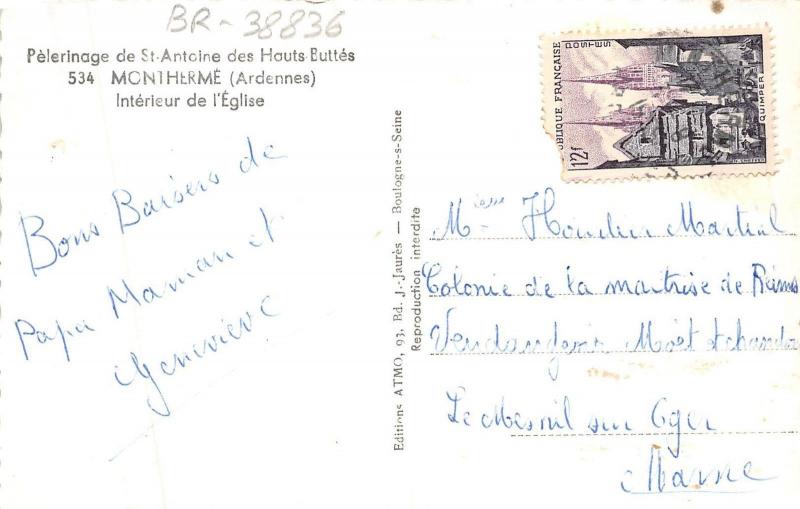 BR-38836
Pèlerinage de St-Antoine des Hauts-Buttés
534 MONTHERMÉ (Ardennes)
Intérieur de l'Église
Bons Baisers de
Papa Maman et
Geneviève
Editions ATMO, 93, Bd. J.-Jaurès — Boulogne-s-Seine
Reproduction interdite
RÉPUBLIQUE FRANÇAISE
POSTES
12f
QUIMPER
Martial
Colonie de la maitrise de Reims
Vendangeoir Moët et chandon
Le Mesnil sur Oger
Marne